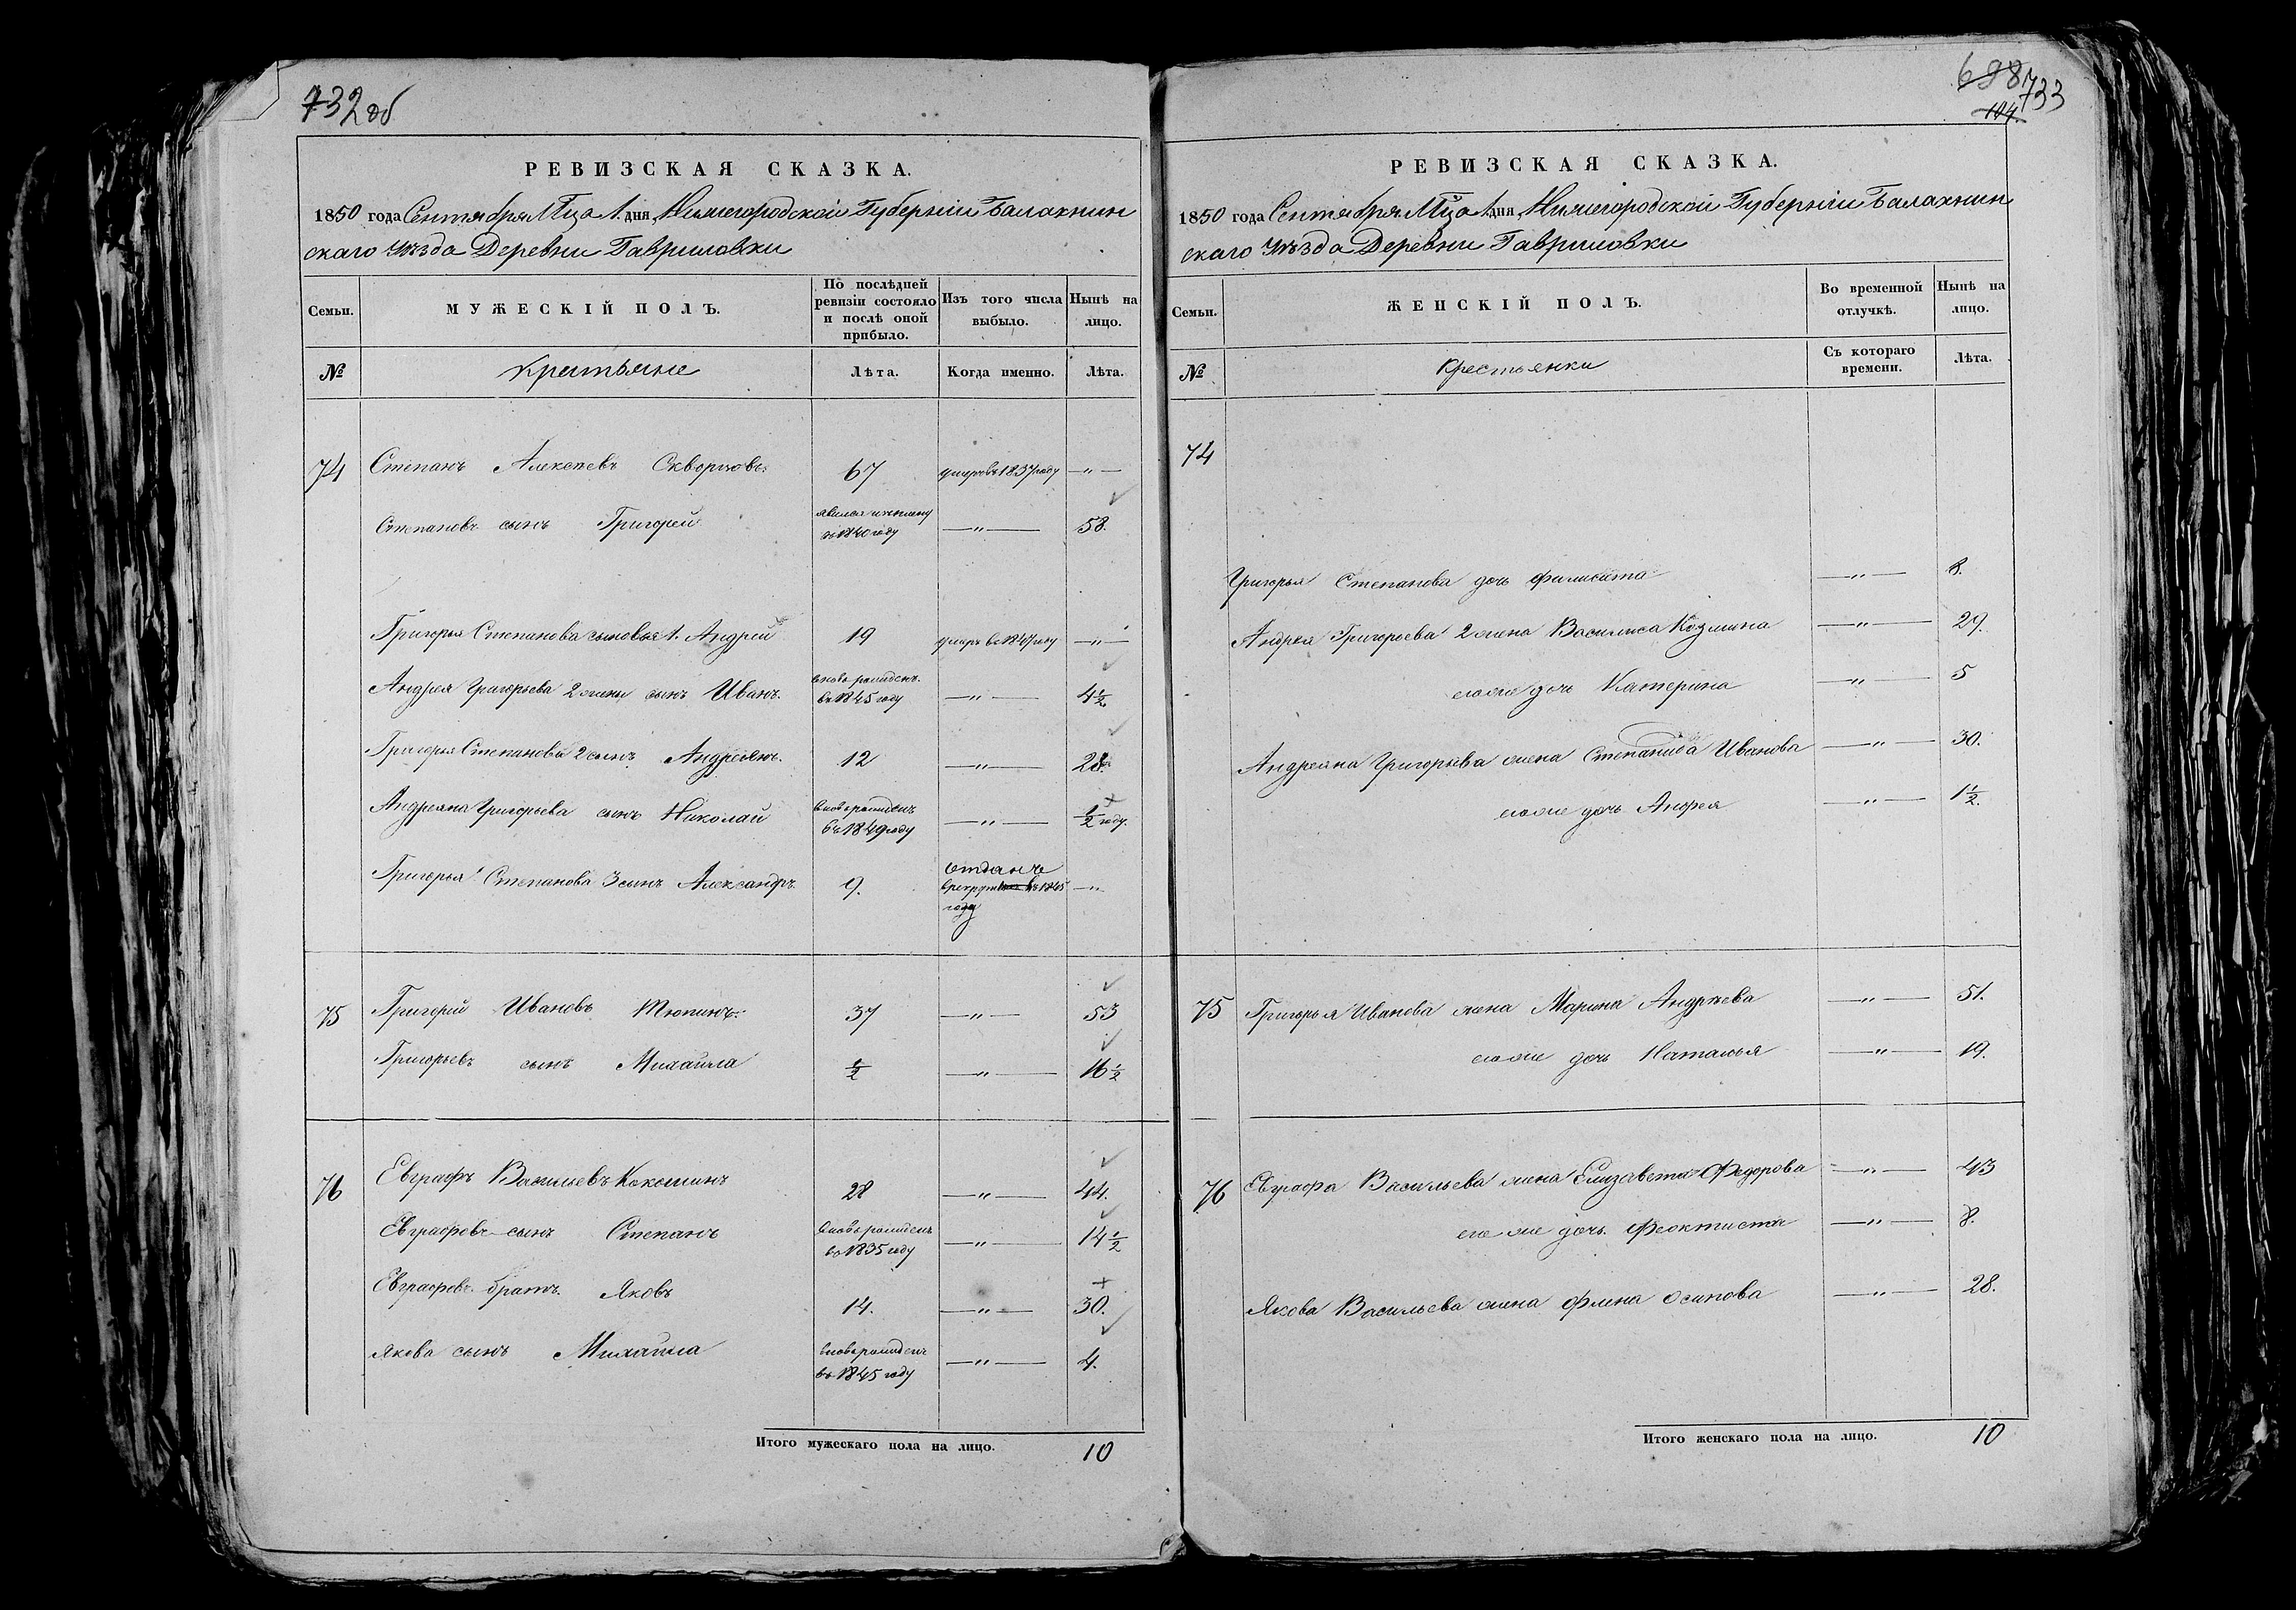 732 об
РЕВИЗСКАЯ СКАЗКА.
1850 года Сентября Мца 1. дня, Нижегородской Губерніи Балахнин
скаго Уѣзда Деревни Гавриловки
Семьи.
МУЖЕСКІЙ ПОЛЪ.
По послѣдней ревизіи состояло и послѣ оной прибыло.
Изъ того числа выбыло.
Нынѣ на лицо.
№ Крестьяне Лѣта. Когда именно. Лѣта.
74 Степанъ Алексѣевъ Скворцовъ 67 умеръ въ 1837 году —"—
Степановъ сынъ Григорей явился изъ плену въ 1840 году —"— 58.
Григорья Степанова сыновья 1. Андрей 19 умеръ въ 1847 году —"—
Андрея Григорьева 2 жены сынъ Иванъ. вновь рожденъ. въ 1845 году —"— 4 1/2
Григорья Степанова 2 сынъ Андреянъ. 12 —"— 28.
Андреяна Григорьева сынъ Николай вновь рожденъ въ 1849 году —"— 1/2 году.
Григорья Степанова 3 сынъ Александръ 9. отданъ в рекруты въ 1845 году —"
75 Григорій Ивановъ Тюпинъ. 37 —"— 53
Григорьевъ сынъ Михайла 1/2 —"— 16 1/2
76 Евграфъ Васильевъ Кокошинъ 28 —"— 44.
Евграфовъ сынъ Степанъ вновь рожденъ въ 1835 году —"— 14 1/2
Евграфовъ братъ. Яковъ 14. —"— 30.
Якова сынъ Михайла вновь рожденъ въ 1845 году —"— 4.
Итого мужескаго пола на лицо. 10
688 733
104.
РЕВИЗСКАЯ СКАЗКА.
1850 года Сентября Мца 1 дня, Нижегородской Губерніи Балахнин
скаго Уѣзда Деревни Гавриловки
Семьи.
ЖЕНСКІЙ ПОЛЪ.
Во временной отлучкѣ.
Нынѣ на лицо.
№ Крестьянки Съ котораго времени. Лѣта.
74
Григорья Степанова дочь Филисата —"— 8.
Андрея Григорьева 2 жена Василиса Козмина —"— 29.
его же дочь Катерина —"— 5
Андреяна Григорьева жена Степанида Иванова —"— 30.
его же дочь Анфея —"— 1 1/2.
75 Григорья Иванова жена Марина Андрѣева —"— 51.
его же дочь Наталья —"— 19.
76 Евграфа Васильева жена Елизавета Федорова —"— 43
его же дочь. Феоктиста —"— 8.
Якова Васильева жена Флена Осипова —"— 28.
Итого женскаго пола на лицо. 10